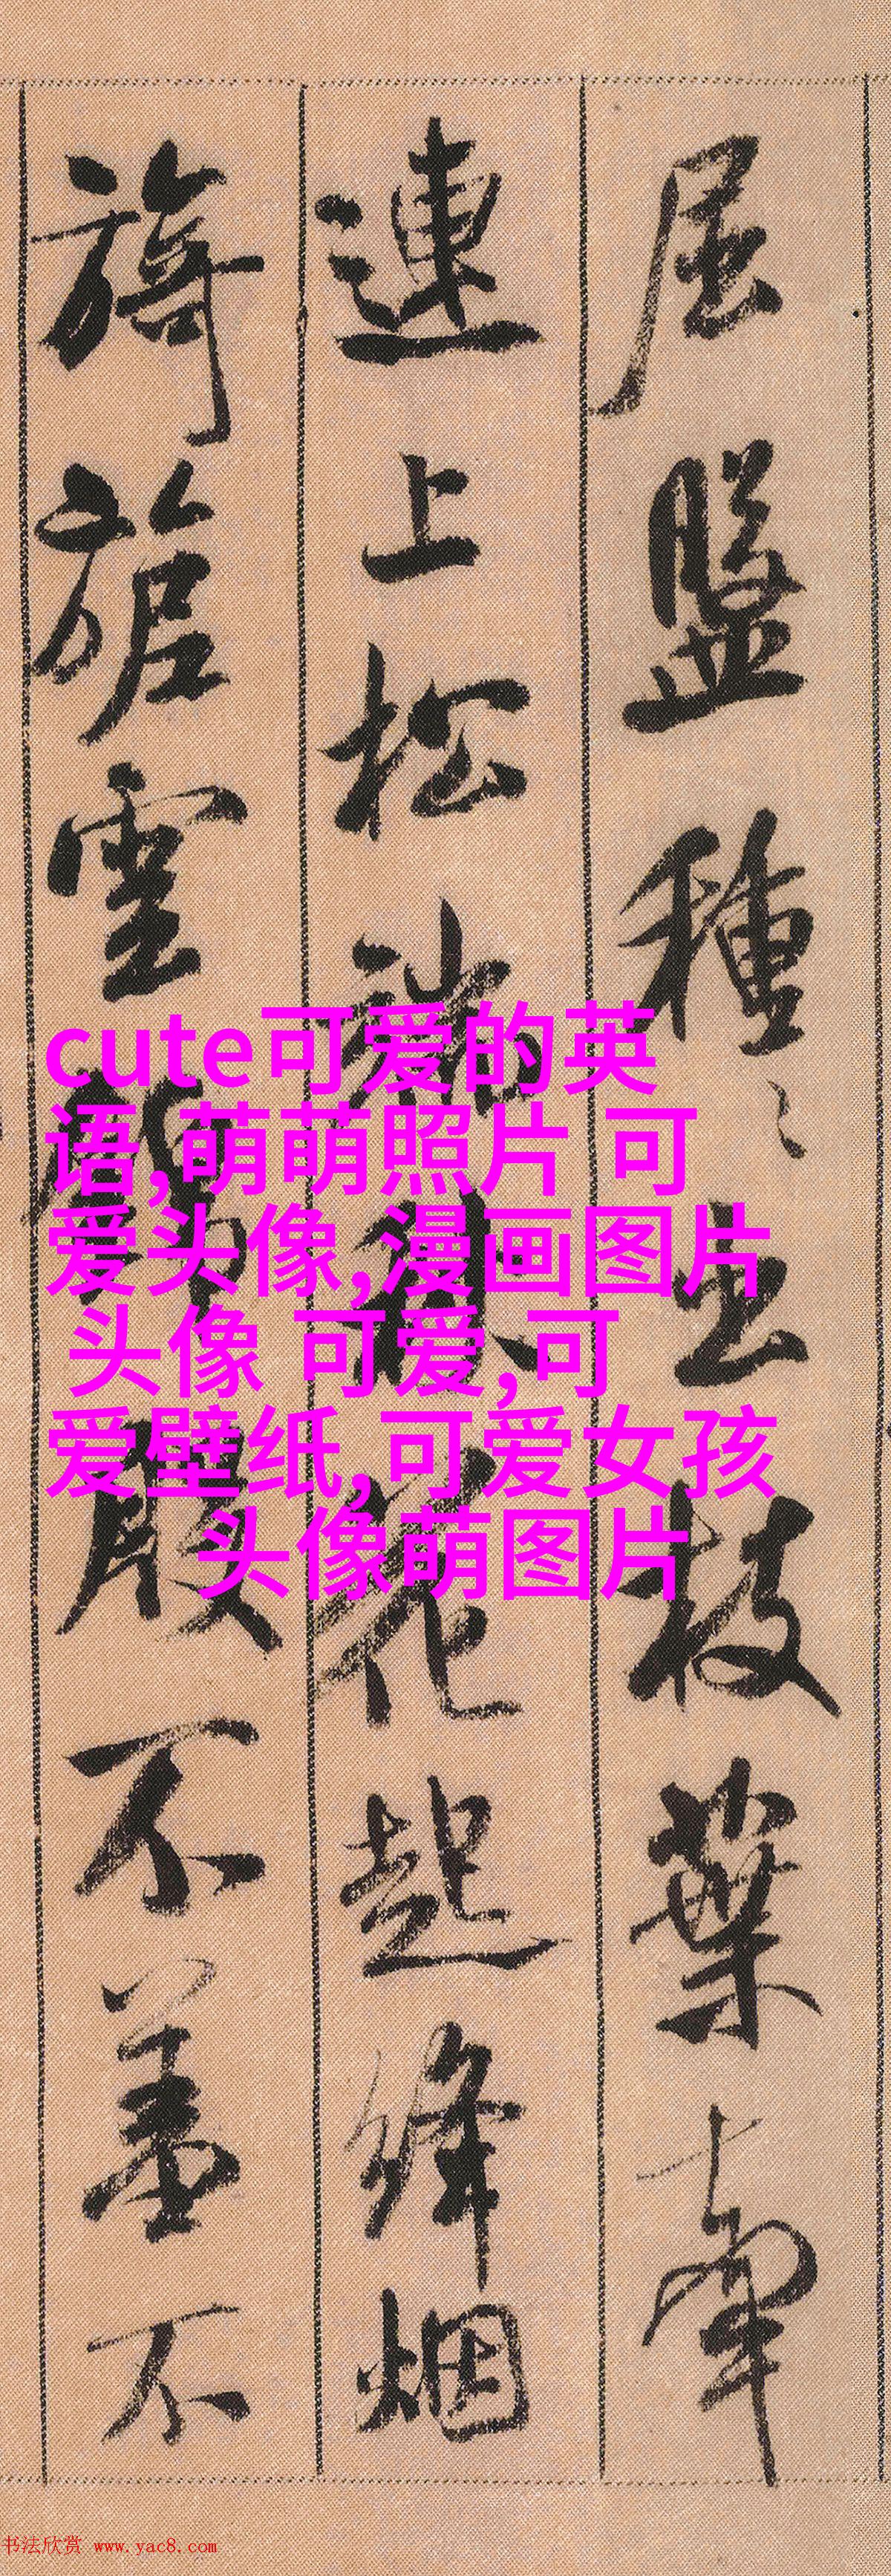 屈盤種々出枝葉牽
連上松端秋花起絳烟
旖旎雲錦殷不羞不
cute可爱的英
语,萌萌照片 可
爱头像,漫画图片
头像 可爱,可
爱壁纸,可爱女孩
头像萌图片
书法欣赏 www.yac8.com